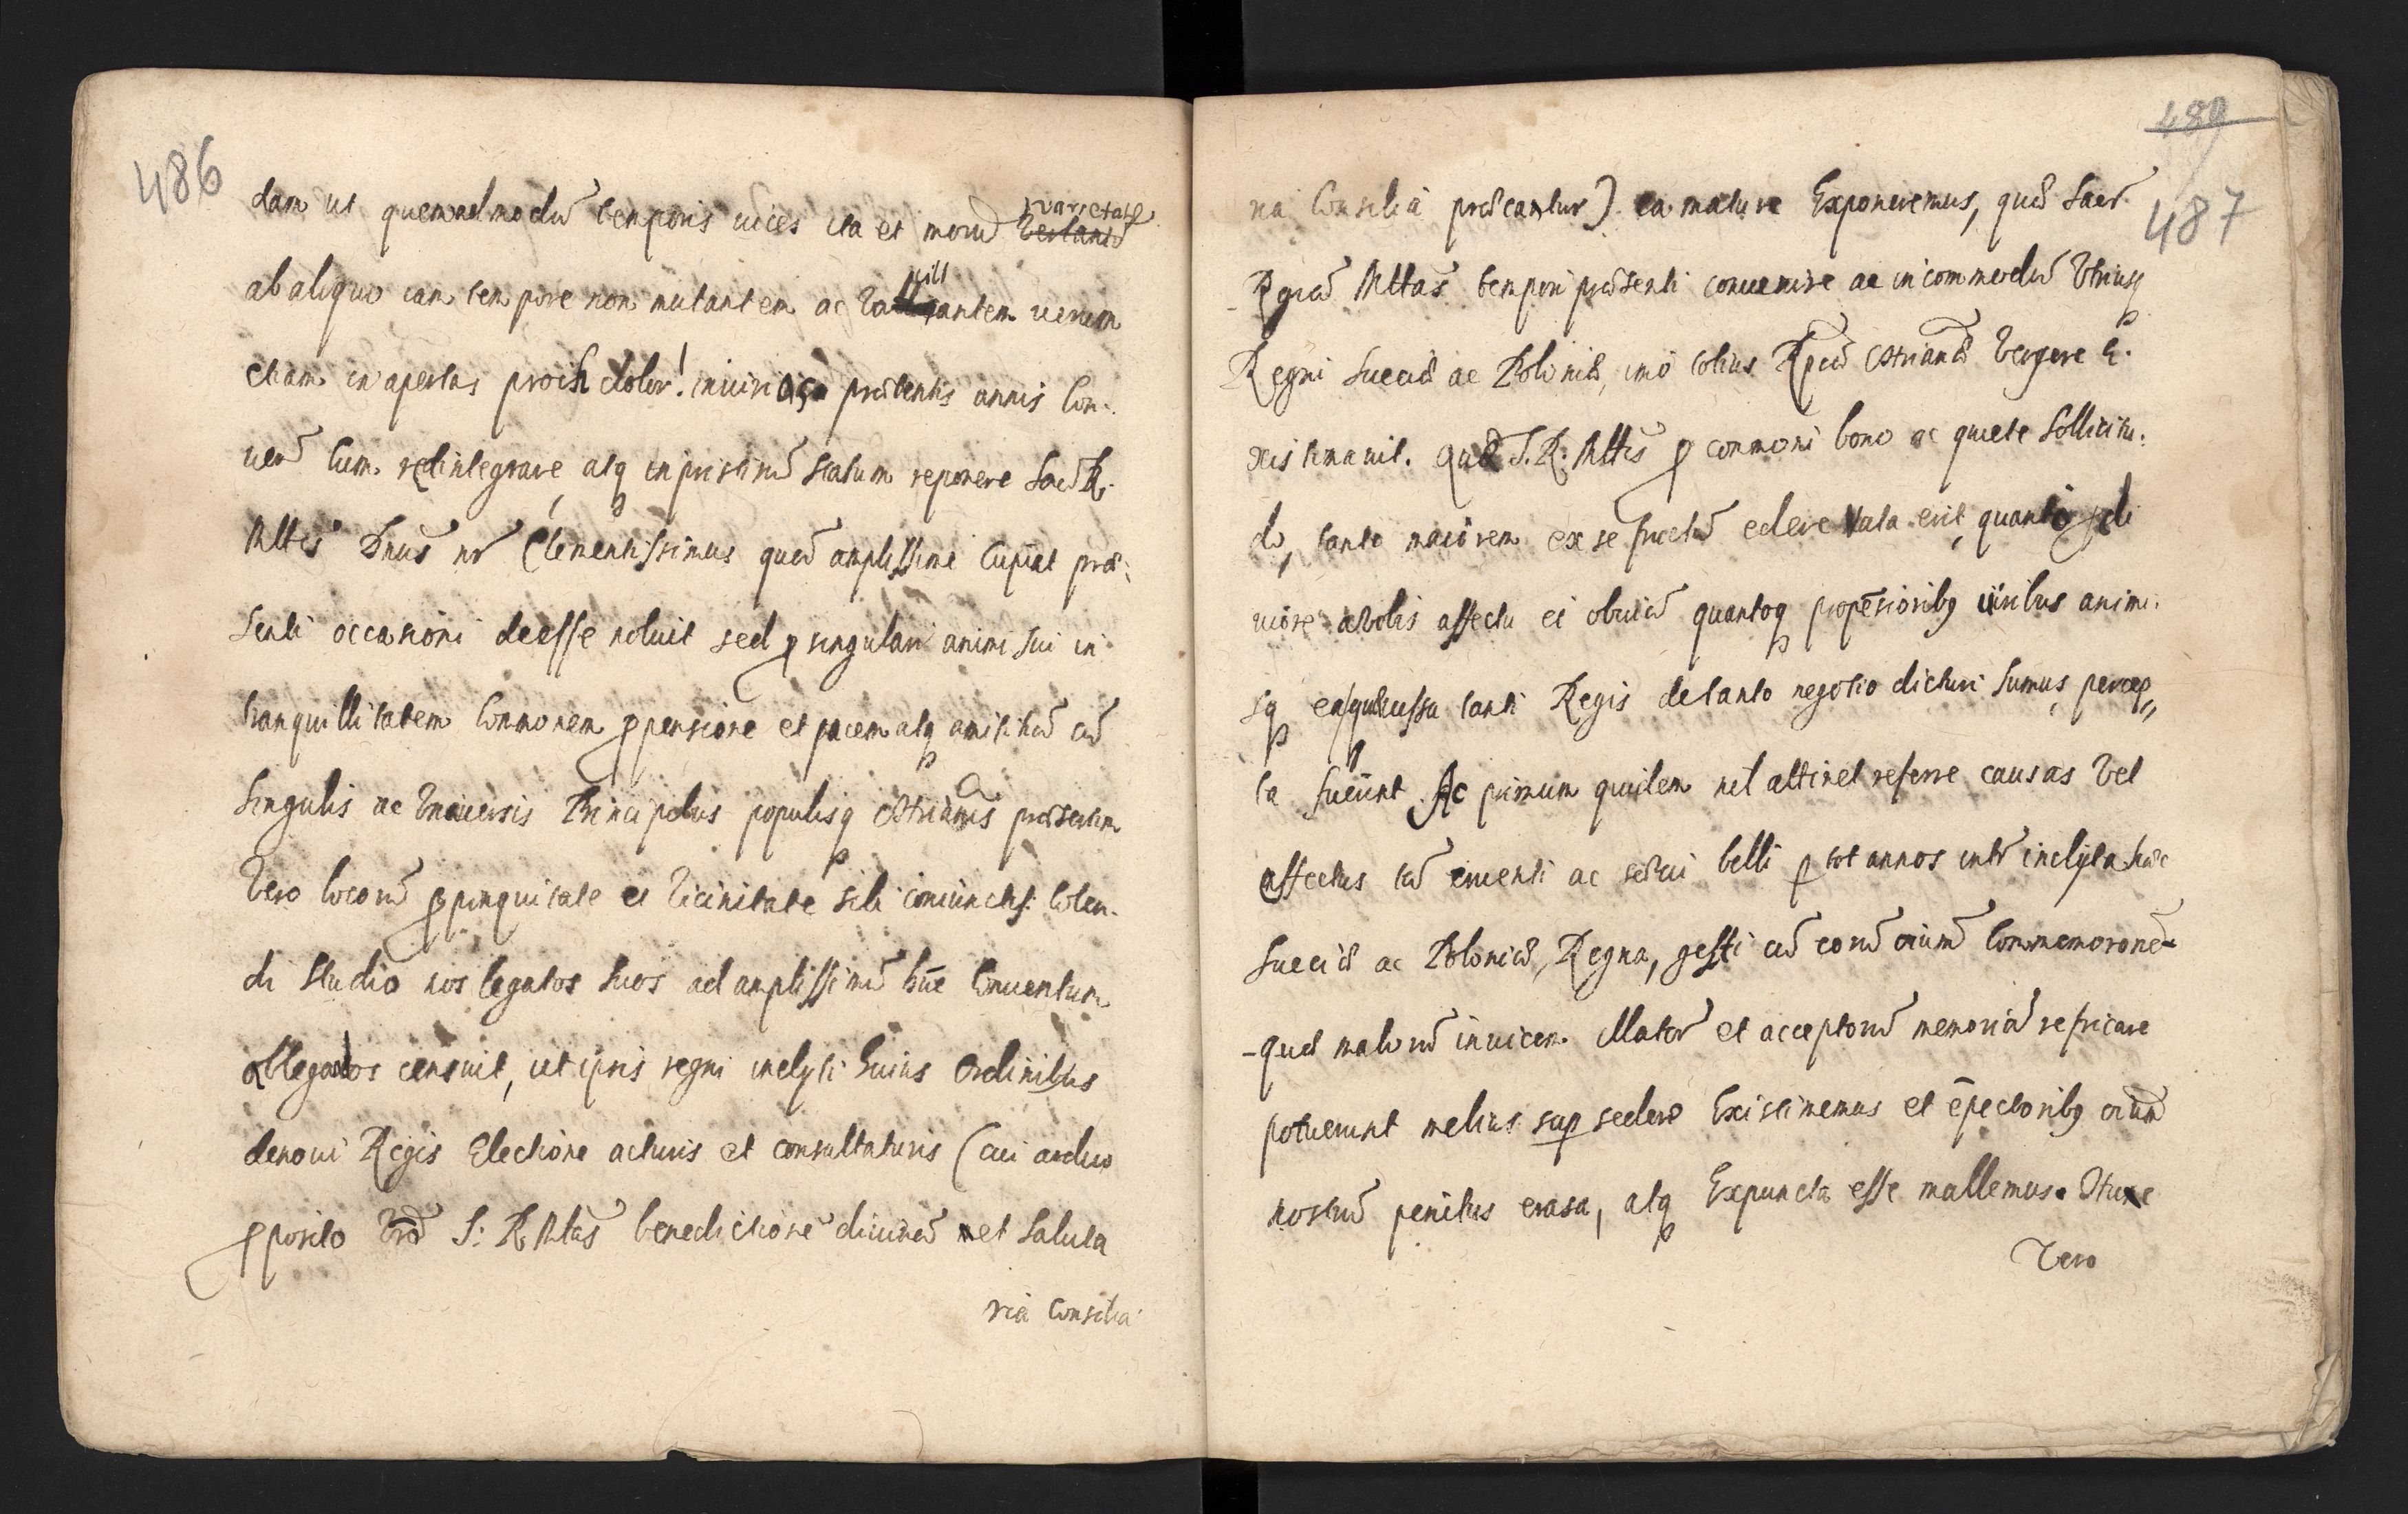 486
dam ut quemadmodũ temporis uices ita et morũ varietatẽ
ab aliquo iam tempore non mutantem ac vacillantem uerum
etiam in apertas proch dolor! inimicitias præsentis annis Con-
uersã tum redintegrare, atq in pristinũ statum reponere Sac R.
Mttis Dnus nr Clementissimus quã amplissime Cupiat præ-
senti occasioni deesse noluit sed p singulari animi sui in
tranquillitatem Commonem ppensione et pacem atq amicitiã cũ
Singulis ac Vniuersis Principibus populisq Christianis præsertim
Vero locorũ ppinquitate et Vicinitate sibi coniunctis Colen-
di studio nos legatos suos ad amplissimũ hũc Conuentum
ablegandos censuit, ut ipsis regni inclyti huius Ordinibus
de noui Regis Electione acturis et consultaturis (cui arduo
pposito S: R. Mtas benedictionẽ diuinã et Saluta
ria Consilia
480
487
ria Consilia præcantur) ea mature Exponeremus, quæ Sacr
Regia Mttas tempori præsenti conuenire ac in commodũ Vtriusq
Regni Sueciæ ac Poloniæ, imo totius Rpcæ Christianæ Vergere E-
xistimauit. Quæ S. R. Mttis p commoni bono ac quiete Sollicitu-
do, tanto maiorem ex se fructũ edere nata erit, quanto
uiore a Vobis affectu ei obuiã quantoq propẽsioribg uiribus animi-
sq ea, quæ iussu tanti Regis de tanto negotio dicturi sumus, percep„
ta fuerint. Ac primum quidem nil attinet referre causas Vel
affectus tã cruenti ac sæui belli p tot annos intr inclyta hæc
Sueciæ ac Poloniæ, Regna, gesti cũ eorũ oium Commemoronẽ
quæ malorũ inuicem illator et acceptorũ memoriã refricare
potuerunt melius supsedere Existimemus et e pectoribg oium
nostrũ penitus erasa, atq Expuncta esse mallemus. Nunc
Vero